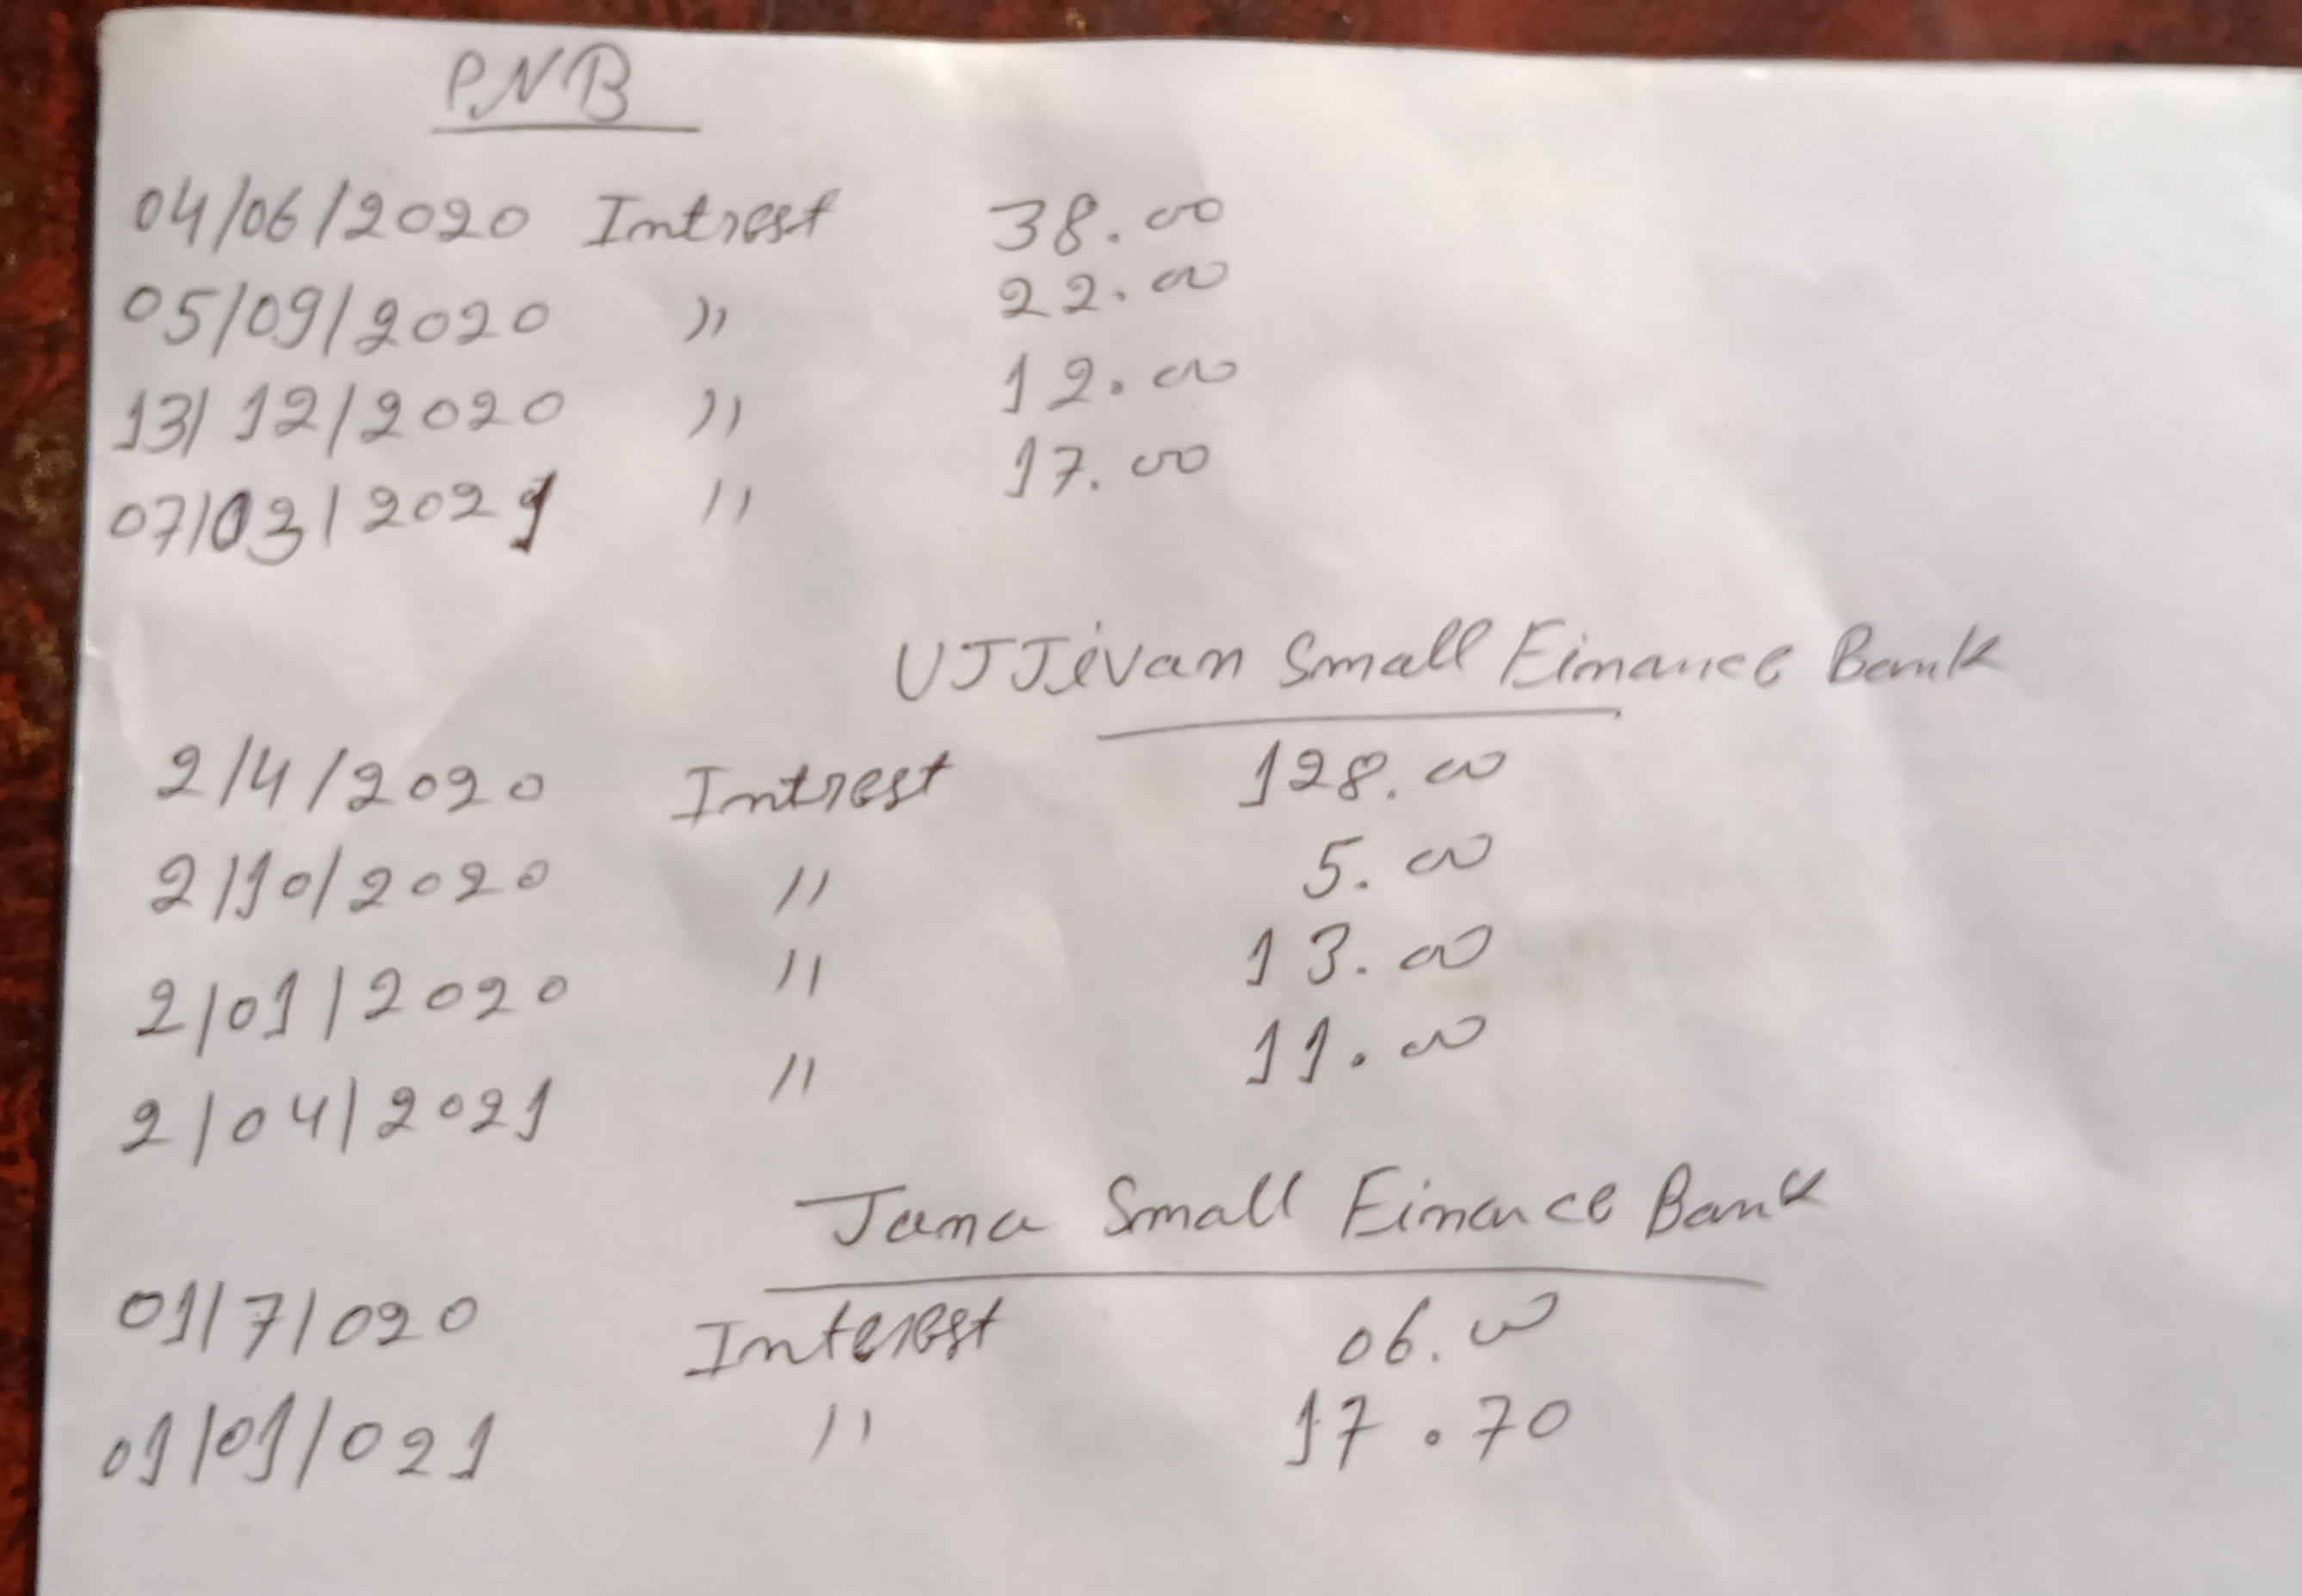 PNB
04/06/2020 Intrest 38.00
05/09/2020 " 22.00
13/12/2020 " 12.00
07/03/2021 " 17.00
UJJivan Small Finance Bank
2/4/2020 Intrest 128.00
2/10/2020 " 5.00
2/01/2020 " 13.00
2/04/2021 " 11.00
Jana Small Finance Bank
01/7/020 Interest 06.00
01/01/021 " 17.70